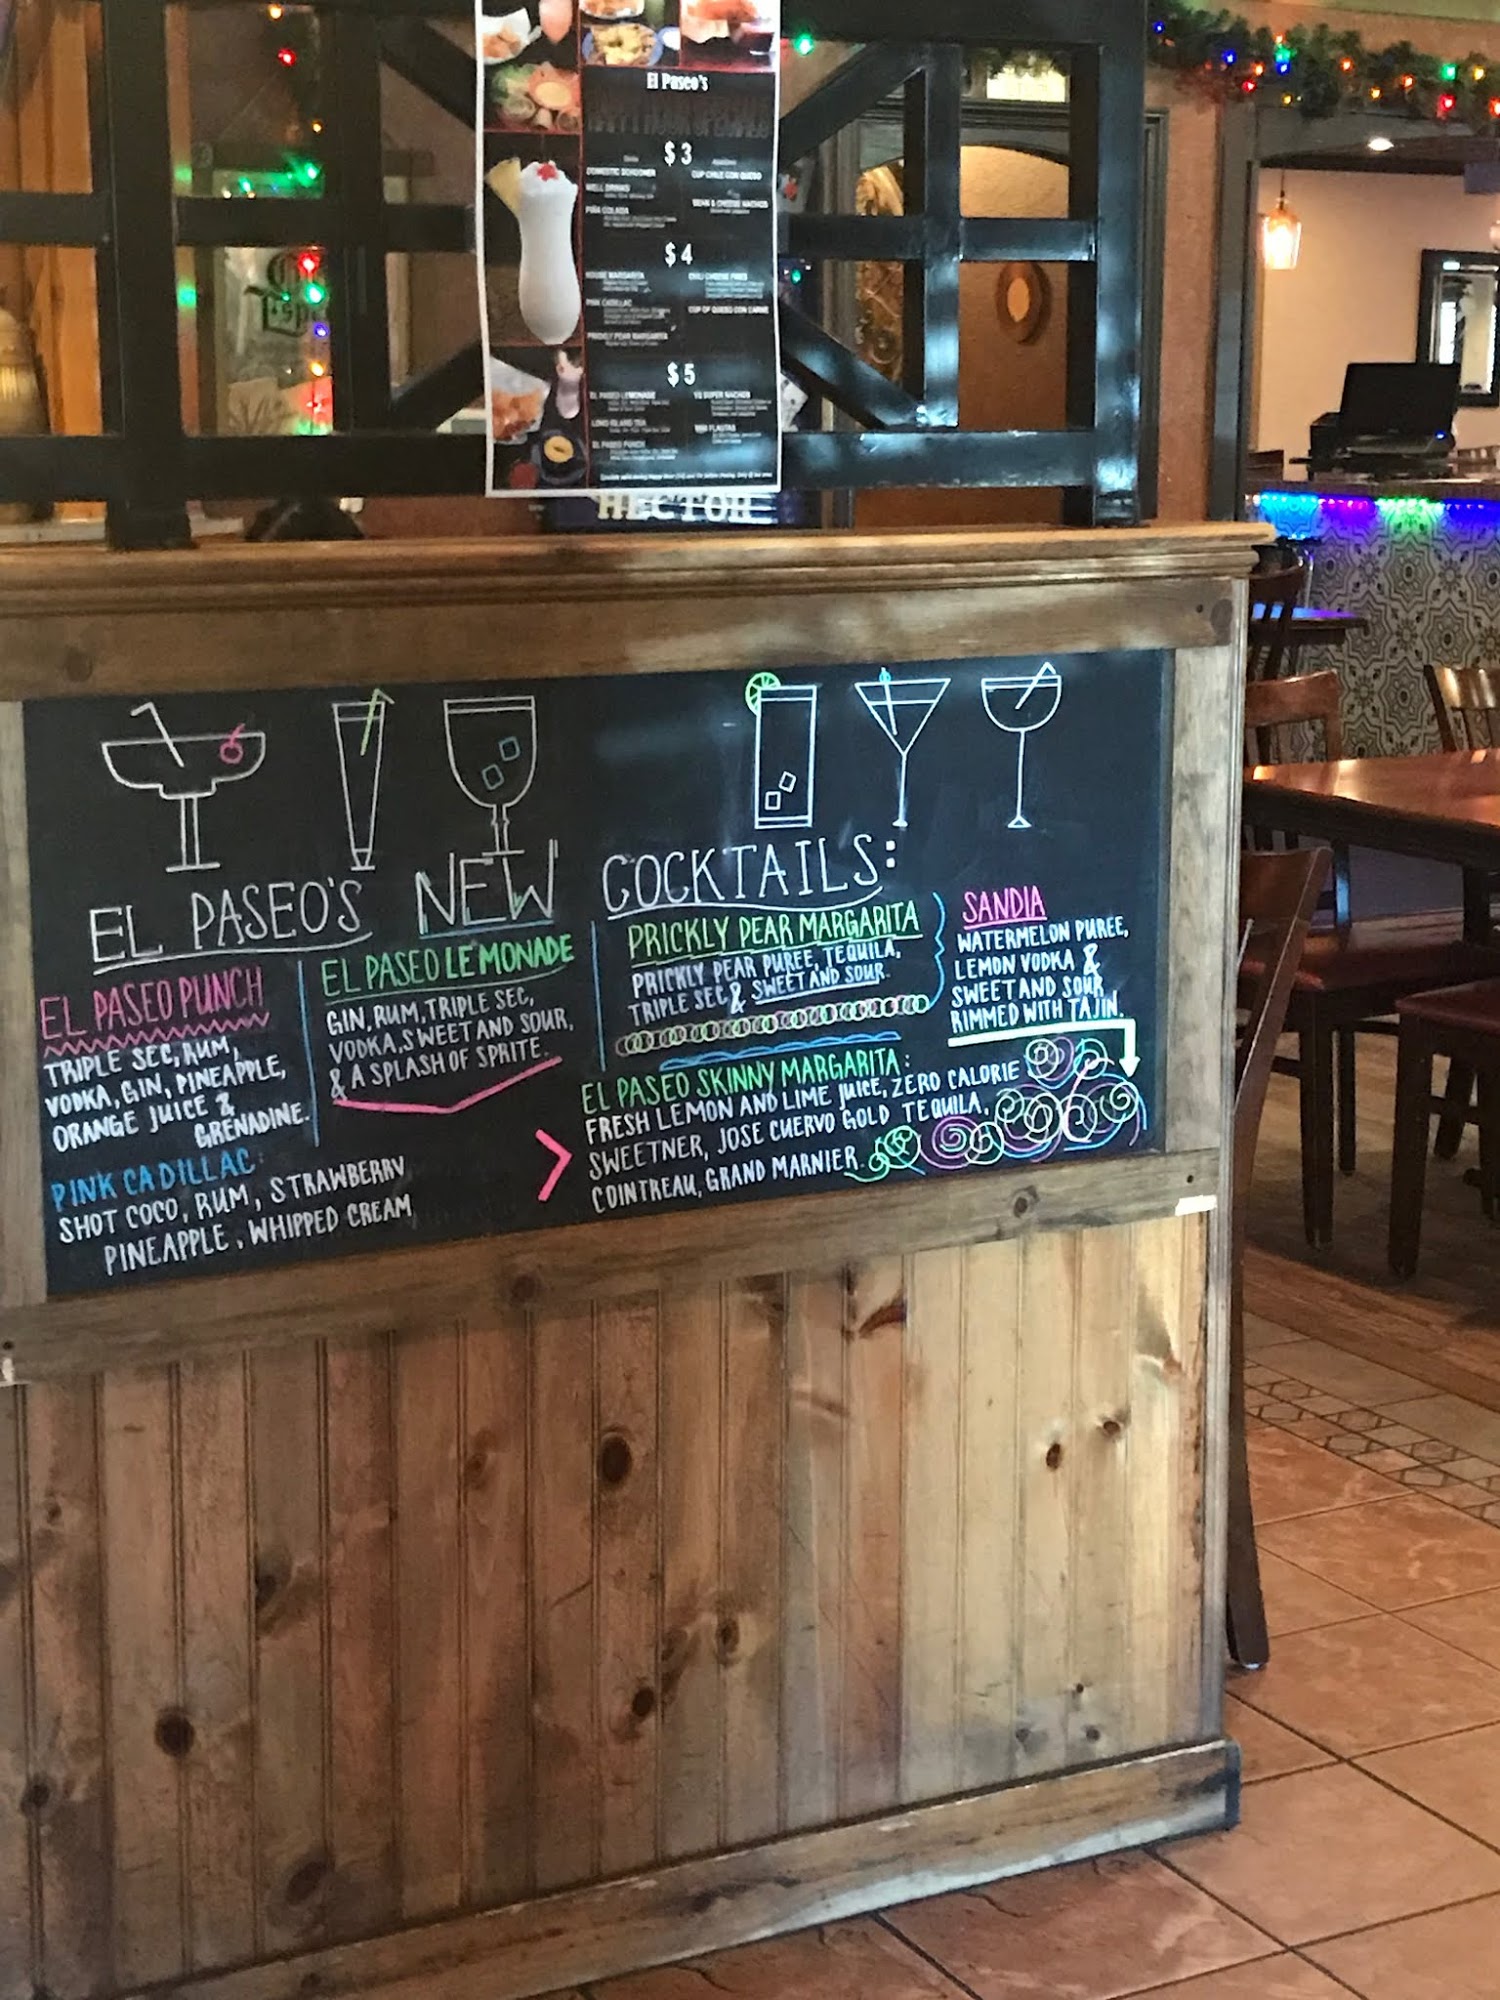 El Paseo's
HAPPY HOUR SPECIALS
$3
DOMESTIC SCHOONER
CUP CHILE CON QUESO
WELL DRINKS
BEAN & CHEESE NACHOS
PIÑA COLADA
$4
HOUSE MARGARITA
CHILI CHEESE FRIES
PINK CADILLAC
CUP OF QUESO CON CARNE
PRICKLY PEAR MARGARITA
$5
EL PASEO LEMONADE
LONG ISLAND TEA
MINI FLAUTAS
EL PASEO PUNCH
HECTOR
EL PASEO'S NEW COCKTAILS:
EL PASEO PUNCH
TRIPLE SEC, RUM,
VODKA, GIN, PINEAPPLE,
ORANGE JUICE &
GRENADINE.
EL PASEO LEMONADE
GIN, RUM, TRIPLE SEC,
VODKA, SWEET AND SOUR,
& A SPLASH OF SPRITE.
PRICKLY PEAR MARGARITA
PRICKLY PEAR PUREE, TEQUILA,
TRIPLE SEC & SWEET AND SOUR.
SANDIA
WATERMELON PUREE,
LEMON VODKA &
SWEET AND SOUR
RIMMED WITH TAJIN.
PINK CADILLAC:
SHOT COCO, RUM, STRAWBERRY
PINEAPPLE, WHIPPED CREAM
EL PASEO SKINNY MARGARITA:
FRESH LEMON AND LIME JUICE, ZERO CALORIE
SWEETNER, JOSE CUERVO GOLD TEQUILA,
COINTREAU, GRAND MARNIER.